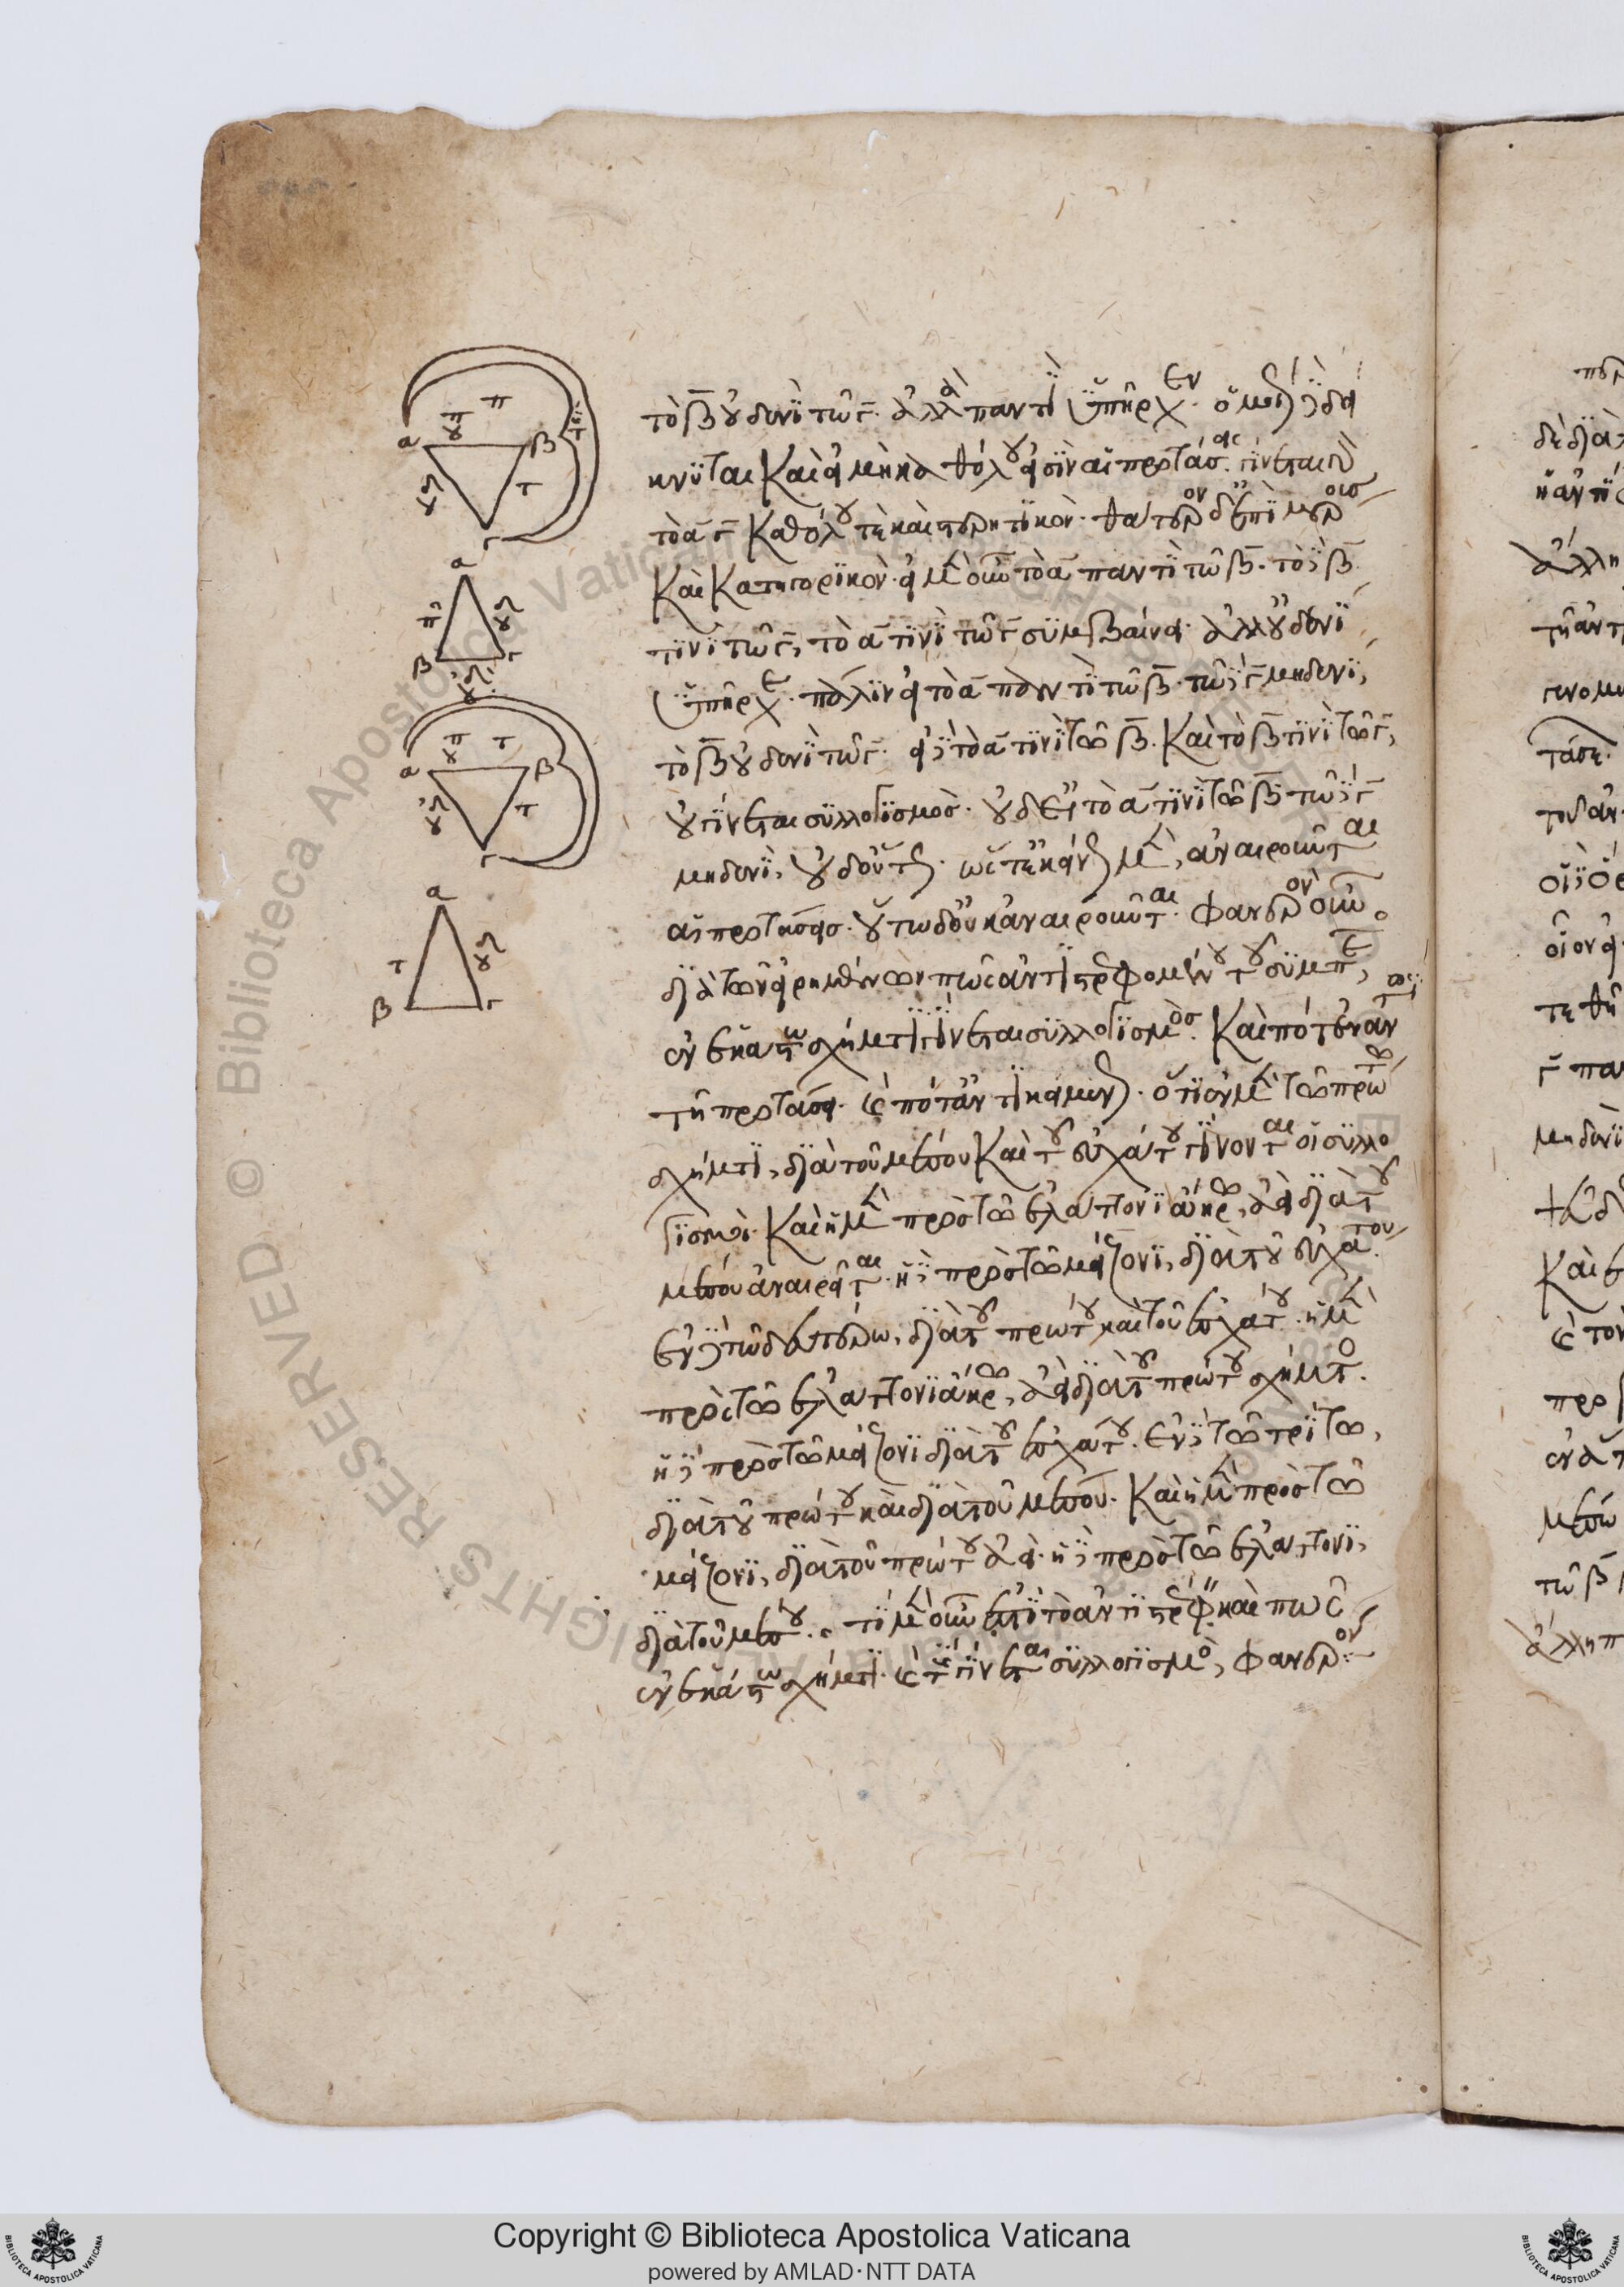 τὸ β οὐδενὶ τῷ γ. ἀλλὰ παντὶ ὑπῆρχεν. ὁμοί δὲ δεί
κνυται καὶ εἰ μὴ καθόλου εἰσὶν αἱ προτάσεις. γίνεται γὰρ
τὸ α γ καθόλου τε καὶ στερητικόν. θάτερον δ' ἐπὶ μέρους
καὶ κατηγορικόν. εἰ μὲν οὖν τὸ α παντὶ τῷ β. τὸ δὲ β
τινὶ τῷ γ, τὸ α τινὶ τῷ γ συμβαίνει. ἀλλ' οὐδενὶ
ὑπῆρχε. πάλιν εἰ τὸ α παντὶ τῷ β. τῷ δὲ γ μηδενί,
τὸ β οὐδενὶ τῷ γ. εἰ δὲ τὸ α τινὶ τῷ β. καὶ τὸ β τινὶ τῷ γ,
οὐ γίνεται συλλογισμός. οὐδ' εἰ τὸ α τινὶ τῷ β τῷ δὲ γ
μηδενί, οὐδ' οὕτως. ὥστ' ἐκείνως μὲν, ἀναιροῦνται
αἱ προτάσεις. οὕτω δ' οὐκ ἀναιροῦνται. φανερὸν οὖν
διὰ τῶν εἰρημένων πῶς ἀντιστρεφομένου τοῦ συμπε
ἐν ἑκάστω σχήματι γίνεται συλλογισμός. καὶ πότ' ἐναντί
τῇ προτάσει. καὶ πότ' ἀντικειμένως. ὅτι ἐν μὲν τῷ πρώτω
σχήματι, διὰ τοῦ μέσου καὶ τοῦ ἐσχάτου γίνονται οἱ συλλο
γισμοί. καὶ ἡ μὲν πρὸς τῷ ἐλάττονι ἄκρω, ἀεὶ διὰ τοῦ
μέσου ἀναιρεῖται. ἡ δὲ πρὸς τῷ μείζονι, διὰ τοῦ ἐσχάτου.
ἐν δὲ τῷ δευτέρω, διὰ τοῦ πρώτου καὶ τοῦ ἐσχάτου. ἡ μὲν
πρὸς τῷ ἐλάττονι ἄκρω, ἀεὶ διὰ τοῦ πρώτου σχήματος.
ἡ δὲ πρὸς τῷ μείζονι διὰ τοῦ ἐσχάτου. ἐν δὲ τῷ τρίτω,
διὰ τοῦ πρώτου καὶ διὰ τοῦ μέσου. καὶ ἡ μὲν πρὸς τῷ
μείζονι, διὰ τοῦ πρώτου ἀεί. ἡ δὲ πρὸς τῷ ἐλάττονι,
διὰ τοῦ μέσου. τί μὲν οὖν ἐστὶ τὸ ἀντιστρέφειν καὶ πῶς
ἐν ἑκάστω σχήματι. καὶ τίς γίνεται συλλογισμός, φανερόν
α β γ
α β γ
α β γ
α β γ
Copyright © Biblioteca Apostolica Vaticana
powered by AMLAD·NTT DATA